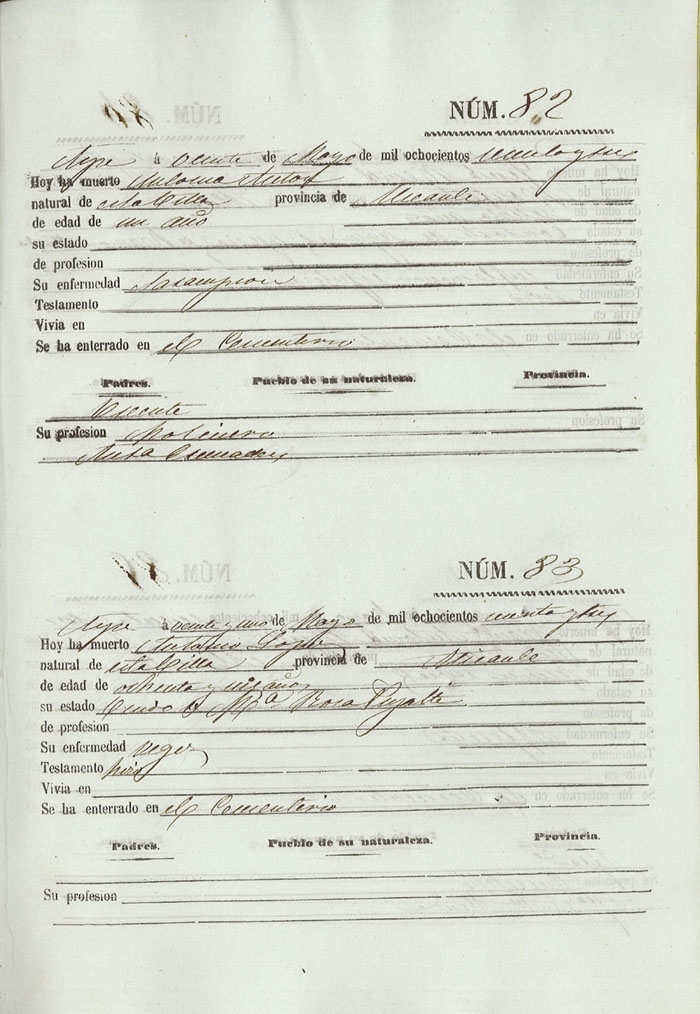 NÚM. 82
Aspe á veinte de Mayo de mil ochocientos
Hoy ha muerto Antonia
natural de esta Villa provincia de Alicante
de edad de un año
su estado
de profesion
Su enfermedad Sarampion
Testamento
Vivia en
Se ha enterrado en el Cementerio
Padres. Pueblo de su naturaleza. Provincia.
Vicente
Su profesion Molinero
NÚM. 83
Aspe á veinte y uno de Mayo de mil ochocientos
Hoy ha muerto Antonio
natural de esta Villa provincia de Alicante
de edad de ochenta y años
su estado Viudo de Mª Rosa
de profesion
Su enfermedad vegez
Testamento hizo
Vivia en
Se ha enterrado en el Cementerio
Padres. Pueblo de su naturaleza. Provincia.
Su profesion